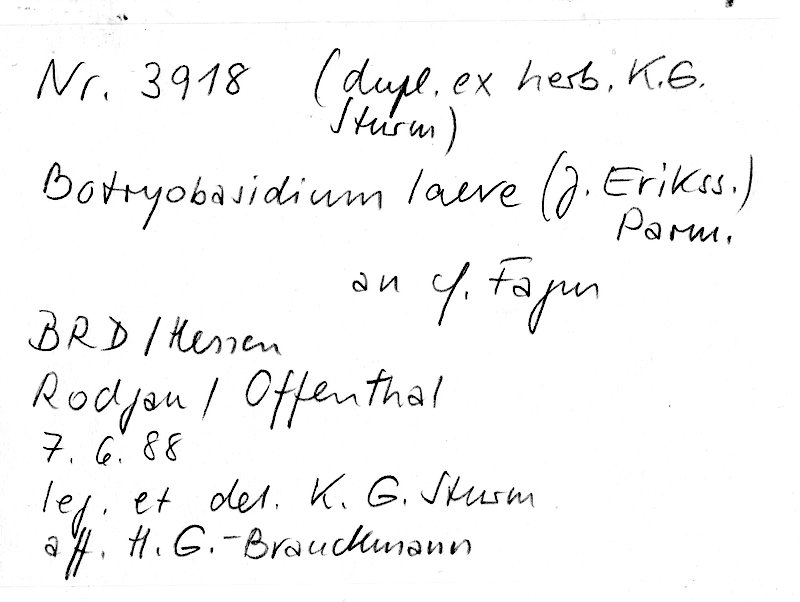 Nr. 3918 (dupl. ex herb. K.G.
Sturm)
Botryobasidium laeve (J. Erikss.)
Parm.
an cf. Fagus
BRD / Hessen
Rodgau / Offenthal
7. 6. 88
leg. et det. K. G. Sturm
aff. H. G.-Brauckmann